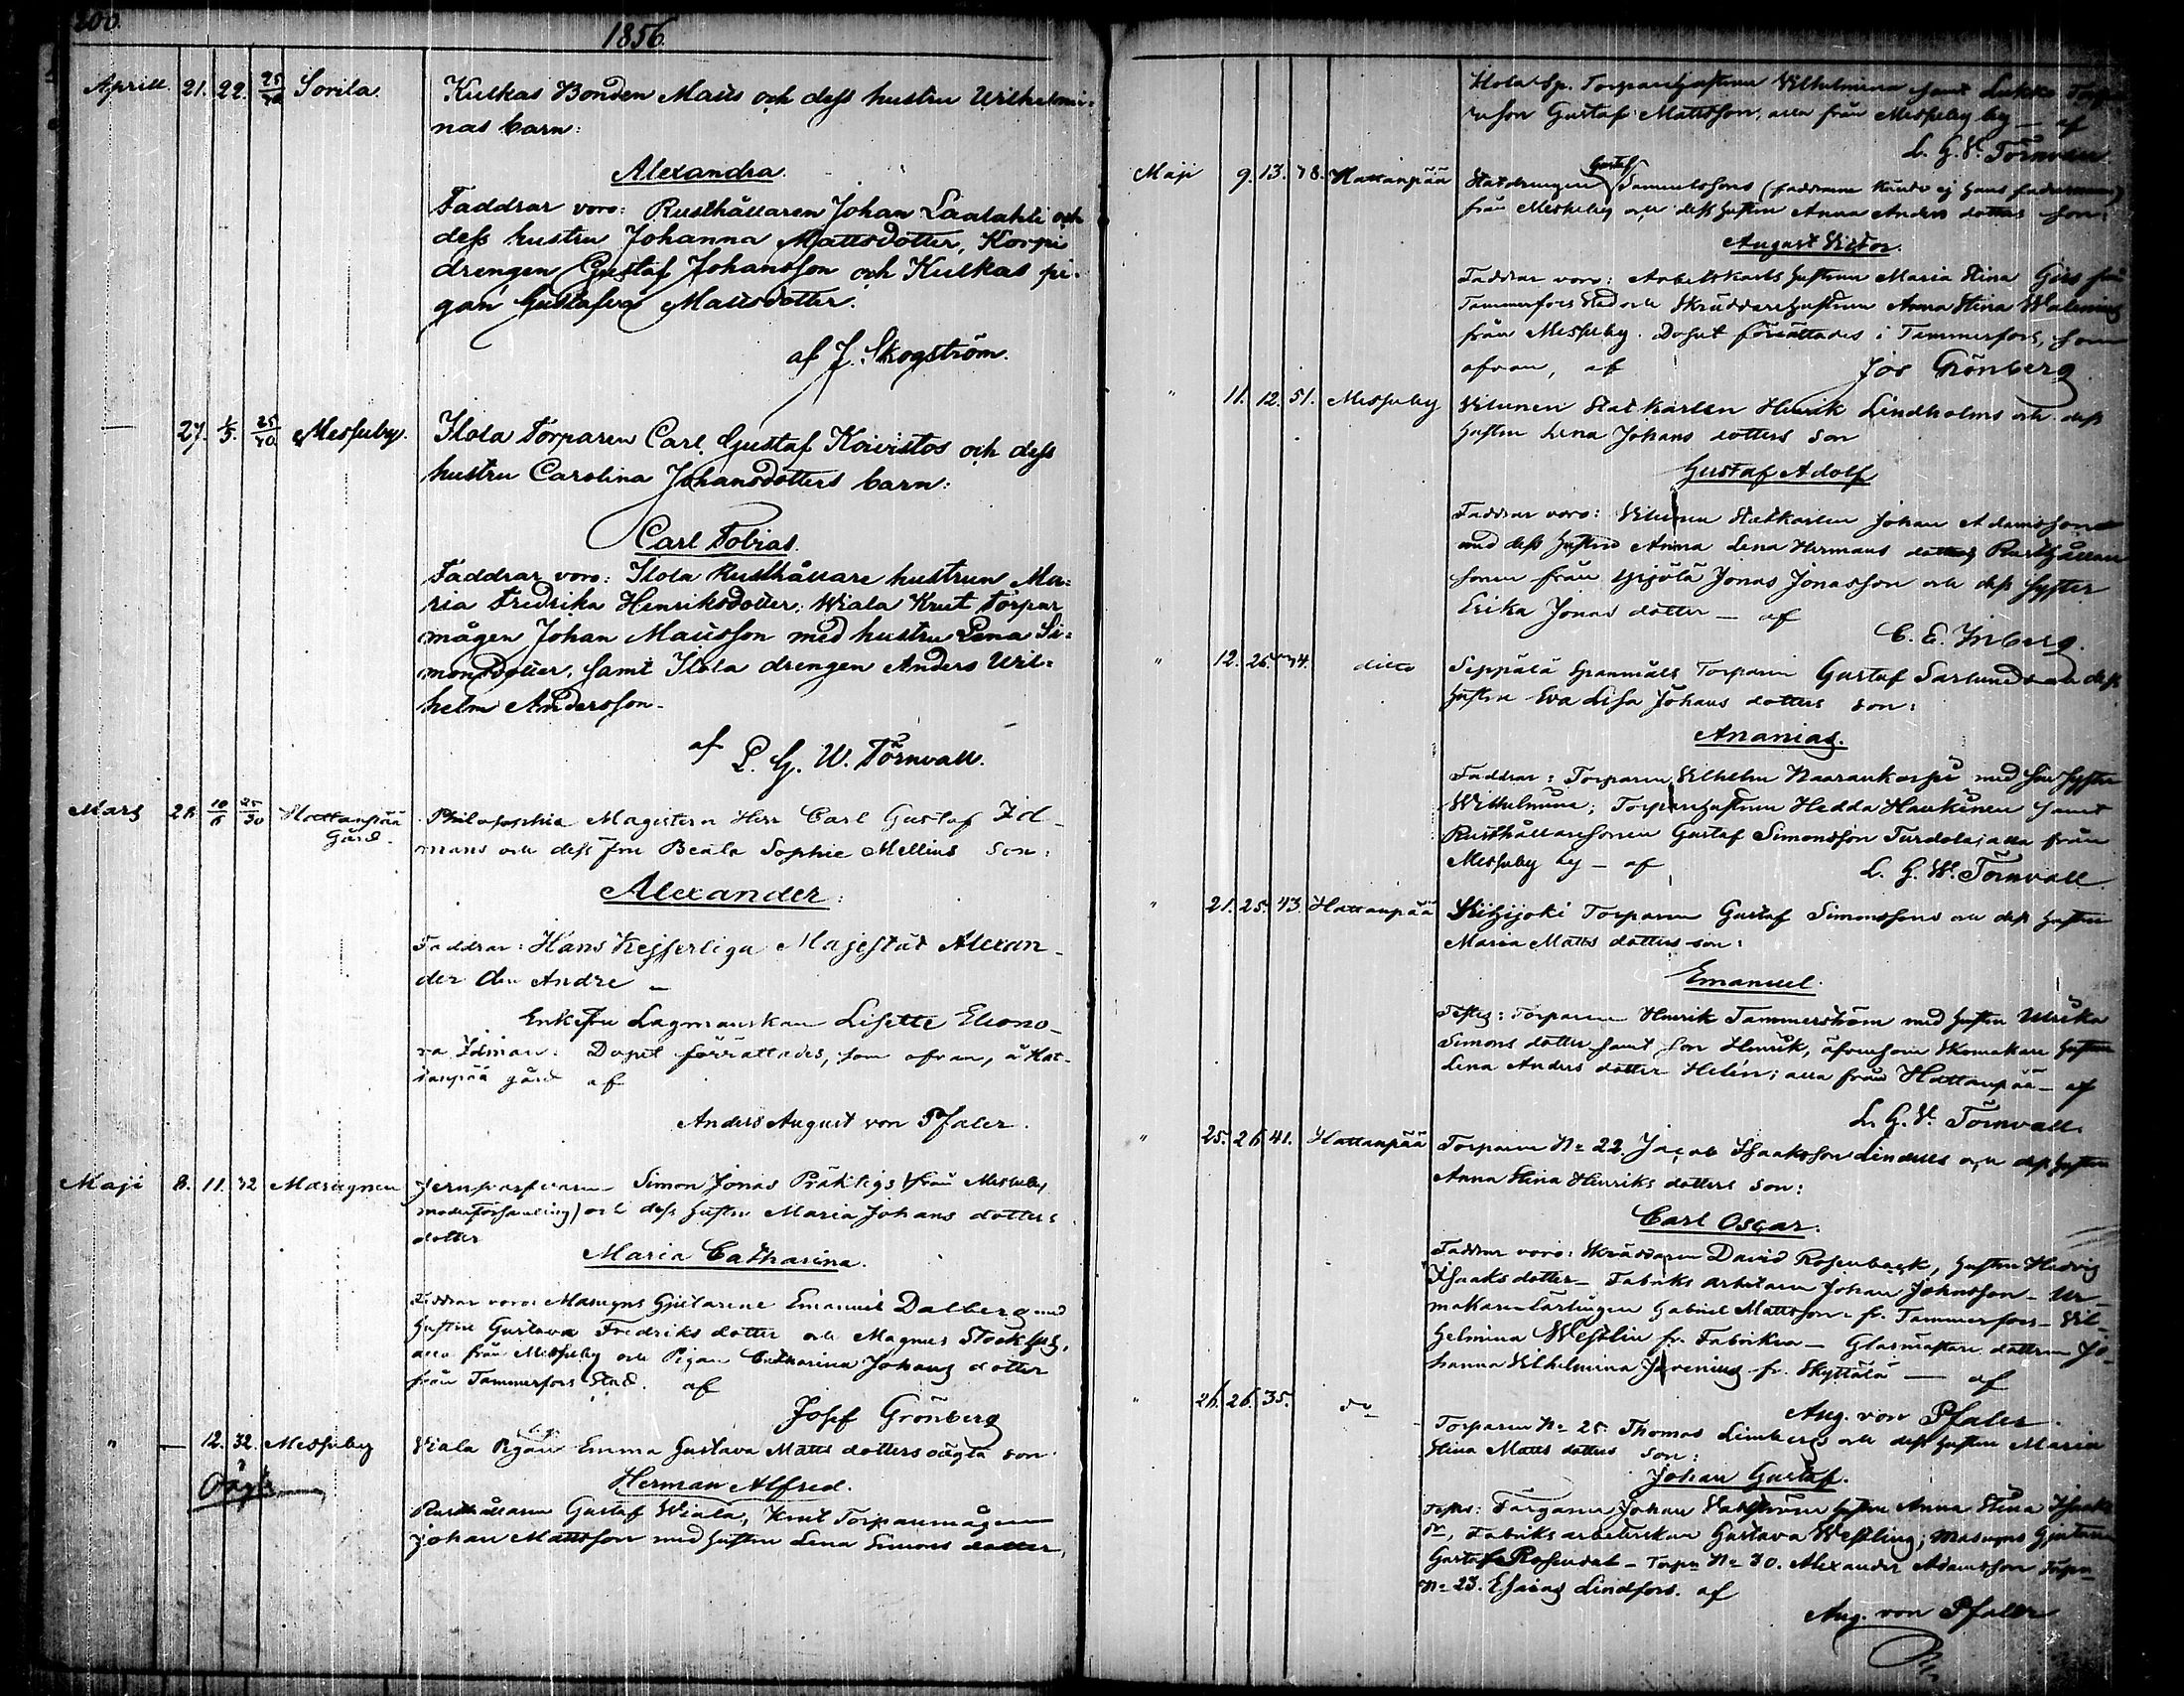 200.
1856.
Aprill. 21. 22. 25/40 Sorila.
Kulkas Bonden Matts och dess hustru Wilhelmi=
nas barn:
Alexandra.
Faddrar voro: Rusthållaren Johan Laalahti och
dess hustru Johanna Mattsdotter, Korpi
drengen Gustaf Johansson och Kulkas pi-
gan Gustafva Mattsdotter.
af J. Skogström.
— 27. 1/5. 25/40 Messuby.
Ilola Torparen Carl Gustaf Koivistos och dess
hustru Carolina Johansdotters barn:
Carl Tobias.
Faddrar voro: Ilola Rusthållare hustrun Ma=
ria Fredrika Henriksdotter, Wiala Knut Torpar
mågen Johan Mattsson med hustru Lena Si=
monsdotter, samt Ilola drengen Anders Wil=
helm Andersson.
af L. G. W. Törnvall.
Mars 26 10/6 25/30 Hattanpää
Gård.
Philosophie Magistern Herr Carl Gustaf Id-
mans och dess Fru Beata Sophie Mellius son:
Alexander:
Faddrar: Hans Kejserliga Majestät Alexan-
der den Andre —
Enkefru Lagmanskan Lisette Eleono-
ra Idman. Dopet förrättades, som ofvan, å Hat-
tanpää gård af
Anders August von Pfaler.
Maji 8. 11. 32 Masugnen
Simon Jonas Präktigs (från Messuby
moderförsamling) och dess hustru Maria Johans dotters
dotter
Maria Catharina.
Faddrar voro: Masugns Gjutarene Emanuel Dalberg med
hustru Gustava Fredriks dotter och Magnus
alla från Messuby och Pigan Catharina Johans dotter
från Tammerfors Stad. af
Josef Grönberg
" — 12. 32. Messuby
Oägta
Viala Pigan Emma Gustava Matts dotters oägta son
Herman Alfred.
Rusthållaren Gustaf Wiala, Knut Torparemågen
Johan Mattsson med hustru Lena Simons dotter,
Ilola Sp. Torparehustrun Vilhelmina samt Lukko Torpa
reson Gustaf Mattsson, alla från Messuby by — af
L. G. W. Törnvall
Maji 9. 13. 38. Hattanpää
Gustaf
Statdrengen Samuelssons (faddrarne kände ej hans
från Messuby och dess hustru Anna Anders dotters son:
August Victor.
Faddrar voro: Arbetskarls hustrun Maria Stina från
Tammerfors Stad och Skräddarehustrun Anna Stina
från Messuby. Dopet förrättades i Tammerfors, som
ofvan, af Jos Grönberg
" 11. 12. 51. Messuby
Vilunen Statkarlen Henrik Lindholms och dess
hustru Lena Johans dotters son
Gustaf Adolf
Faddrar voro: Vilunen Statkarlen Johan Adamsson
med dess hustru Anna Lena Hermans dotter, Rusthållare
sonen från Jonas Jonasson och dess syster
Erika Jonas dotter — af
C. E. Inberg.
" 12. 25. 34. ditto
Seppälä Spanmåls Torparen Gustaf Sarlunds och dess
hustru Eva Lisa Johans dotters son:
Ananias.
Faddrar: Torparen Vilhelm Naarankorpi med sin syster
Wilhelmina; Torparehustrun Hedda Haukinen samt
Rusthållaresonen Gustaf Simonsson Turdola, alla från
Messuby by — af
L. G. W. Törnvall
" 21. 25. 43. Hattanpää
Torparen Gustaf Simonssons och dess hustru
Maria Matts dotters son:
Emanuel.
Testes: Torparen Henrik Tammerström med hustru Ulrika
Simons dotter samt son Henrik, äfvensom Skomakare hustrun
Lena Anders dotter Helén; alla från Hattanpää — af
L. G. W. Törnvall.
" 25. 26. 41. Hattanpää
Torparen No 22 Jacob Isaksson Lindells och dess hustru
Anna Stina Henriks dotters son:
Carl Oscar.
Faddrar voro: Skräddaren David Rosenback, hustru Hedvig
Isaaks dotter — Fabriks arbetaren Johan Johnsson — Ur-
makare Lärlingen Gabriel Mattsson fr. Tammerfors — Vil-
helmina Westlin fr. Fabriken — Glasmästare dottern Jo-
hanna Vilhelmina Juvenius fr. Skyttälä — af
Aug. von Pfaler.
" 26. 26. 35. do
Torparen No 25 Thomas Limbergs och dess hustru Maria
Stina Matts dotters son:
Johan Gustaf.
Testes: Färgaren Johan hustru Anna Stina Isaaks
dr, Fabriks arbeterskan Gustava Westling; Masugns Gjutaren
Gustaf Rosendal — Torpn No 30. Alexander Adamsson Torpn
No 23. Esaias Lindfors. af
Aug. von Pfaler